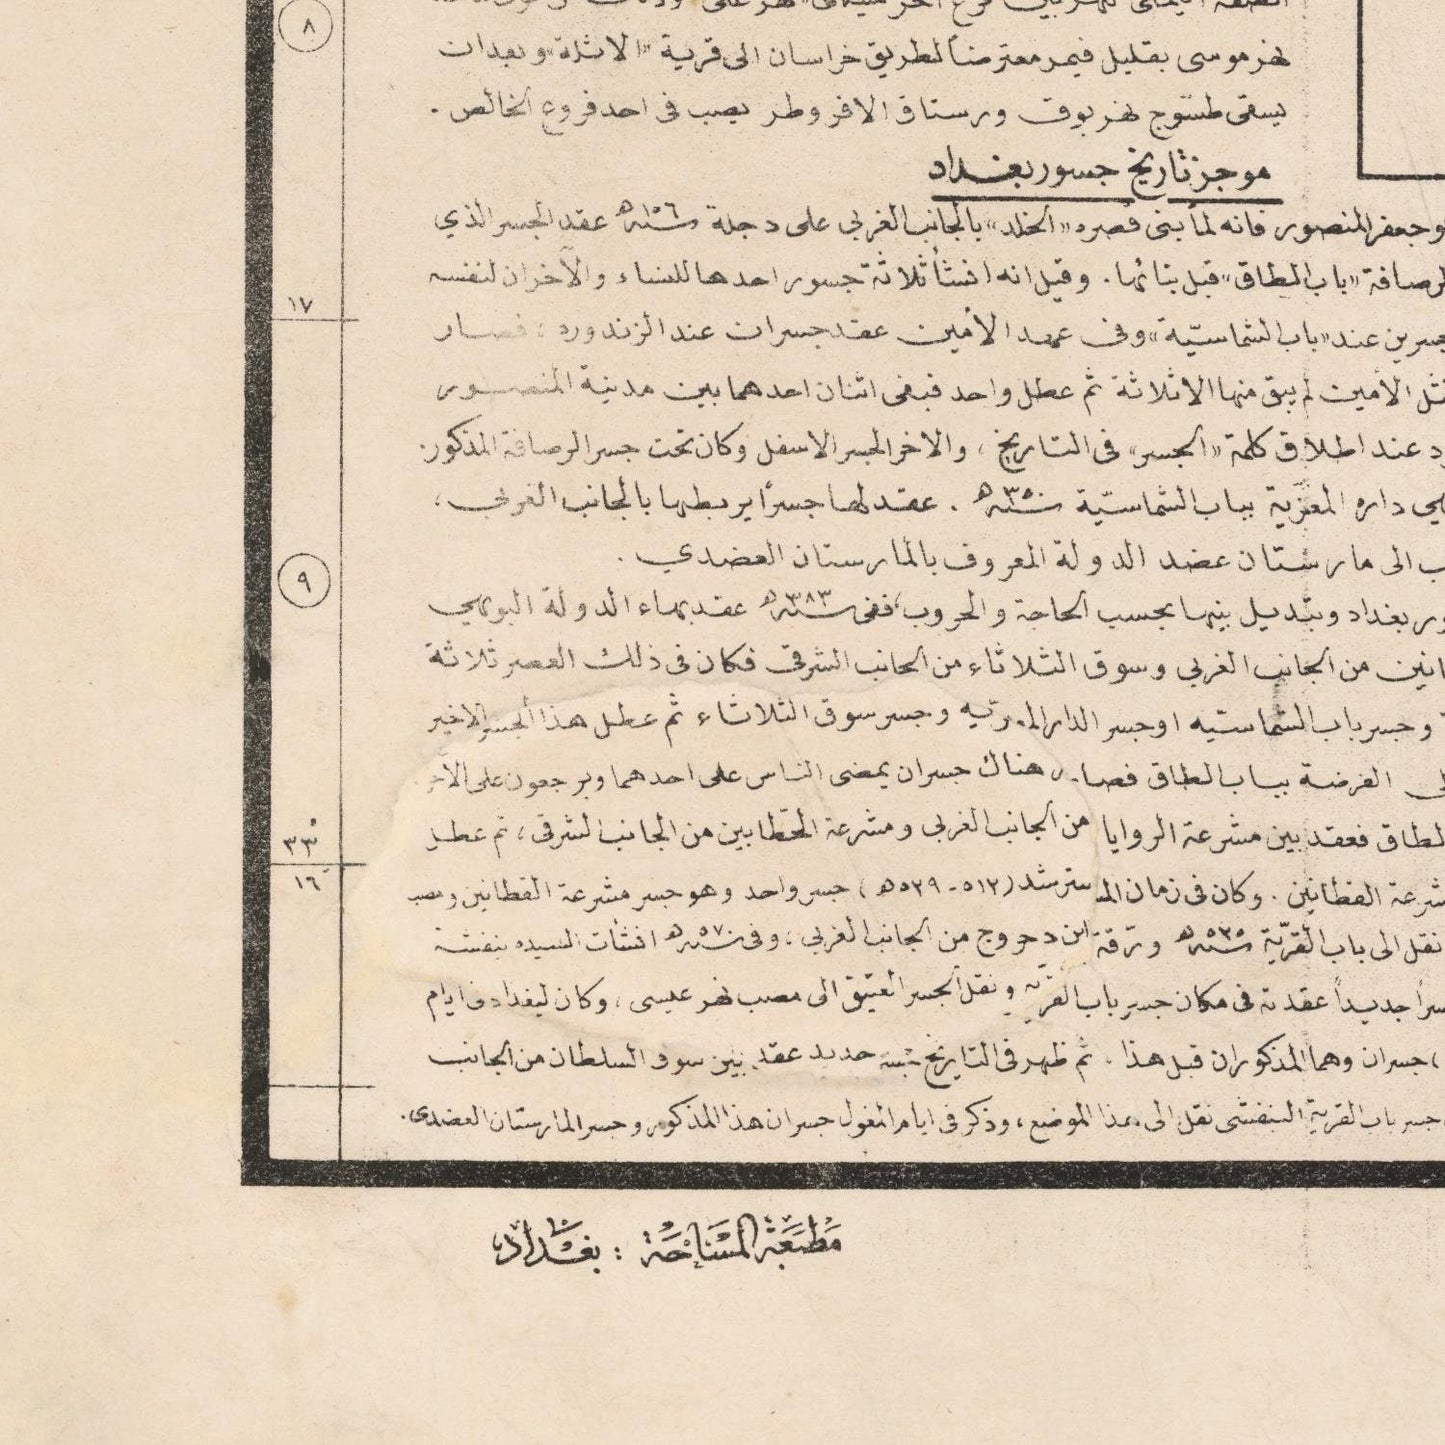 ٨
نهر موسى بقليل فيمر معترضاً لطريق خراسان الى قرية "الاثلة" وبعدان
يسقى طسّوج نهر بوق ورستاق الافروطر يصب فى احد فروع الخالص .
موجز تاريخ جسور بغداد
وجعفر المنصور فانه لما بنى قصره «الخلد» بالجانب الغربي على دجلة سنة ١٥٦ه عقد الجسر الذي
لرصافة «باب الطاق» قبل بنائها . وقيل انه انشأ ثلاثة جسور احدها للنساء والآخران لنفسه
١٧
جسرين عند «باب الشماسيّة» وفى عهد الأمين عقد جسران عند الزندورد ، فصار
الأمين لم يبق منها الا ثلاثة ثم عطل واحد فبقى اثنان احدهما بين مدينة المنصور
د عند اطلاق كلمة «الجسر» فى التاريخ ، والاخر الجسر الاسفل وكان تحت جسر الرصافة المذكور.
داره المعزّية بباب الشماسيّة سنة ٣٥٠ه . عقد لها جسرًا يربطها بالجانب الغربي ،
ب الى مارستان عضد الدولة المعروف بالمارستان العضدي .
٩
ور بغداد وتبديل بينها بحسب الحاجة والحروب، ففى سنة ٣٨٣ه عقد بهاء الدولة البويهي
انين من الجانب الغربي وسوق الثلاثاء من الجانب الشرقي فكان فى ذلك العصر ثلاثة
وجسر باب الشماسيه او جسر الدار وجسر سوق الثلاثاء ثم عطل هذا الجسر الاخير
الفرضة بباب الطاق هناك جسران يمضى الناس على احدهما ويرجعون على الآخر
٣٣°
لطاق فعقد بين مشرعة الروايا من الجانب الغربي ومشرعة الحطّابين من الجانب الشرقي ، ثم عطل
١٦
شرعة القطّانين . وكان فى زمان المسترشد (٥١٢ - ٥٢٩ه) جسر واحد وهو جسر مشرعة القطانين
نقل الى باب القريّة سنة ٥٣٥ه ورقة ابن دحروج من الجانب الغربي ، وفى سنة ٥٧٠ه انشأت السيده بنفشة
سرًا جديداً عقدته فى مكان جسر باب القريّه ونقل الجسر العتيق الى مصب نهر عيسى ، وكان لبغداد فى ايام
) جسران وهما المذكوران قبل هذا . ثم ظهر فى التاريخ جديد عقد بين سوق السلطان من الجانب
جسر باب القرية البنفشى نقل الى هذا الموضع ، وذكر فى ايام المغول جسران هذا المذكور وجسر المارستان العضدي.
مَطبَعَة المسَاحَة : بغْداد